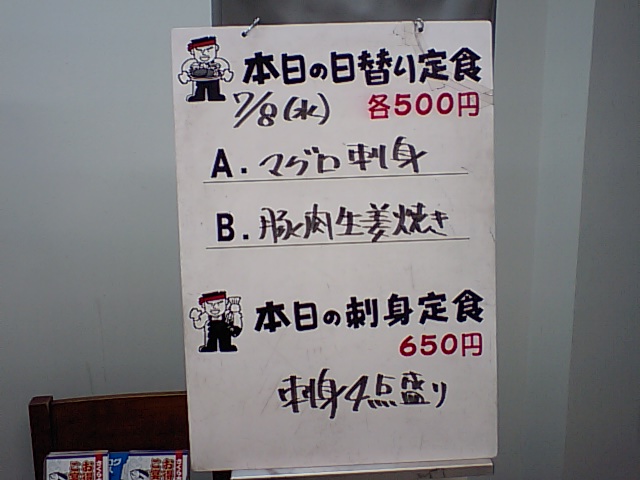 本日の日替り定食
7/8(水) 各500円
A. マグロ刺身
B. 豚肉生姜焼き
本日の刺身定食
650円
刺身4点盛り